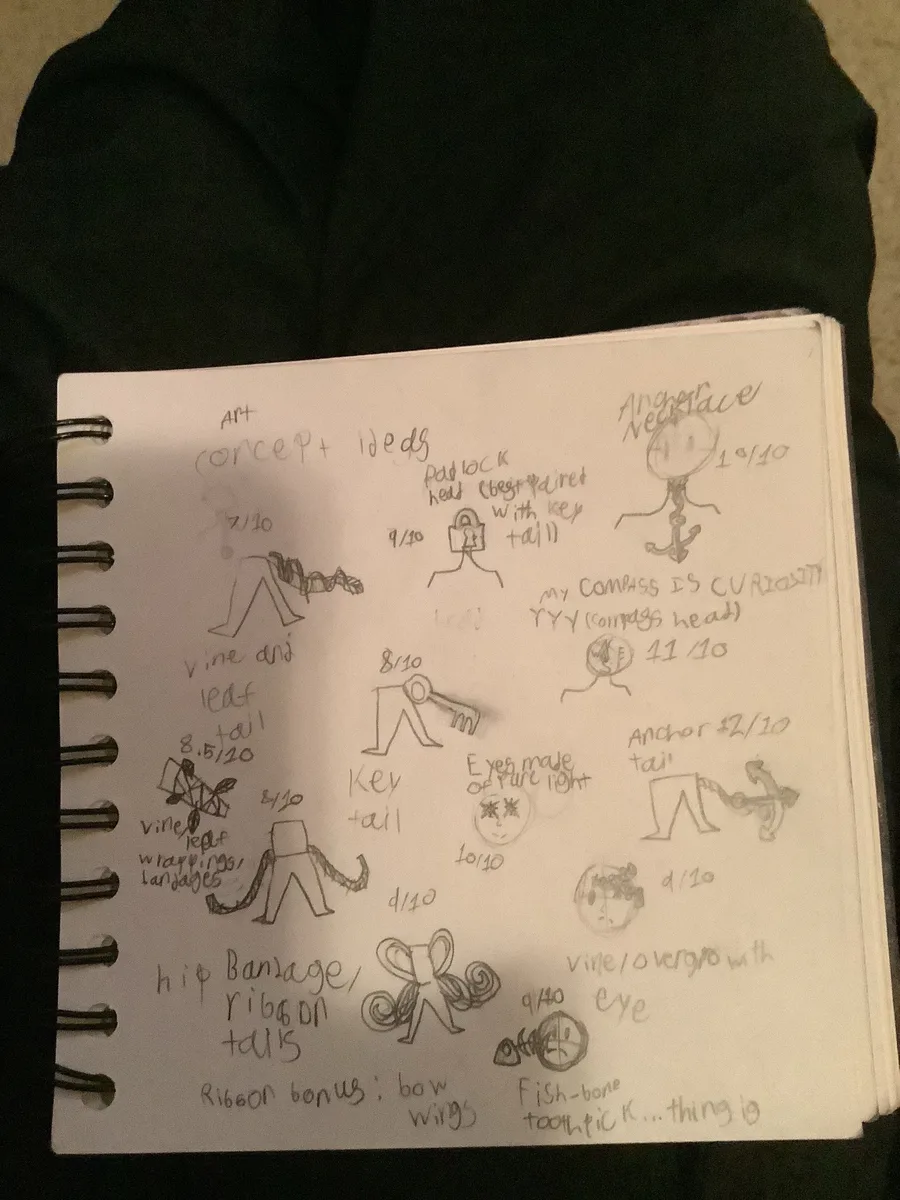 Art
concept ideas
Anchor
Necklace
10/10
Padlock
head (best paired
with key
tail)
9/10
7/10
vine and
leaf
tail
MY COMPASS IS CURIOSITY
YYY (compass head)
11/10
8/10
Key
tail
Eyes made
of pure light
10/10
Anchor
tail
12/10
8.5/10
vine/
leaf
wrappings/
bandages
8/10
hip Bandage/
ribbon
tails
d/10
Ribbon bonus: bow
wings
d/10
vine/overgrowth
eye
9/10
Fish-bone
toothpick...thing ig